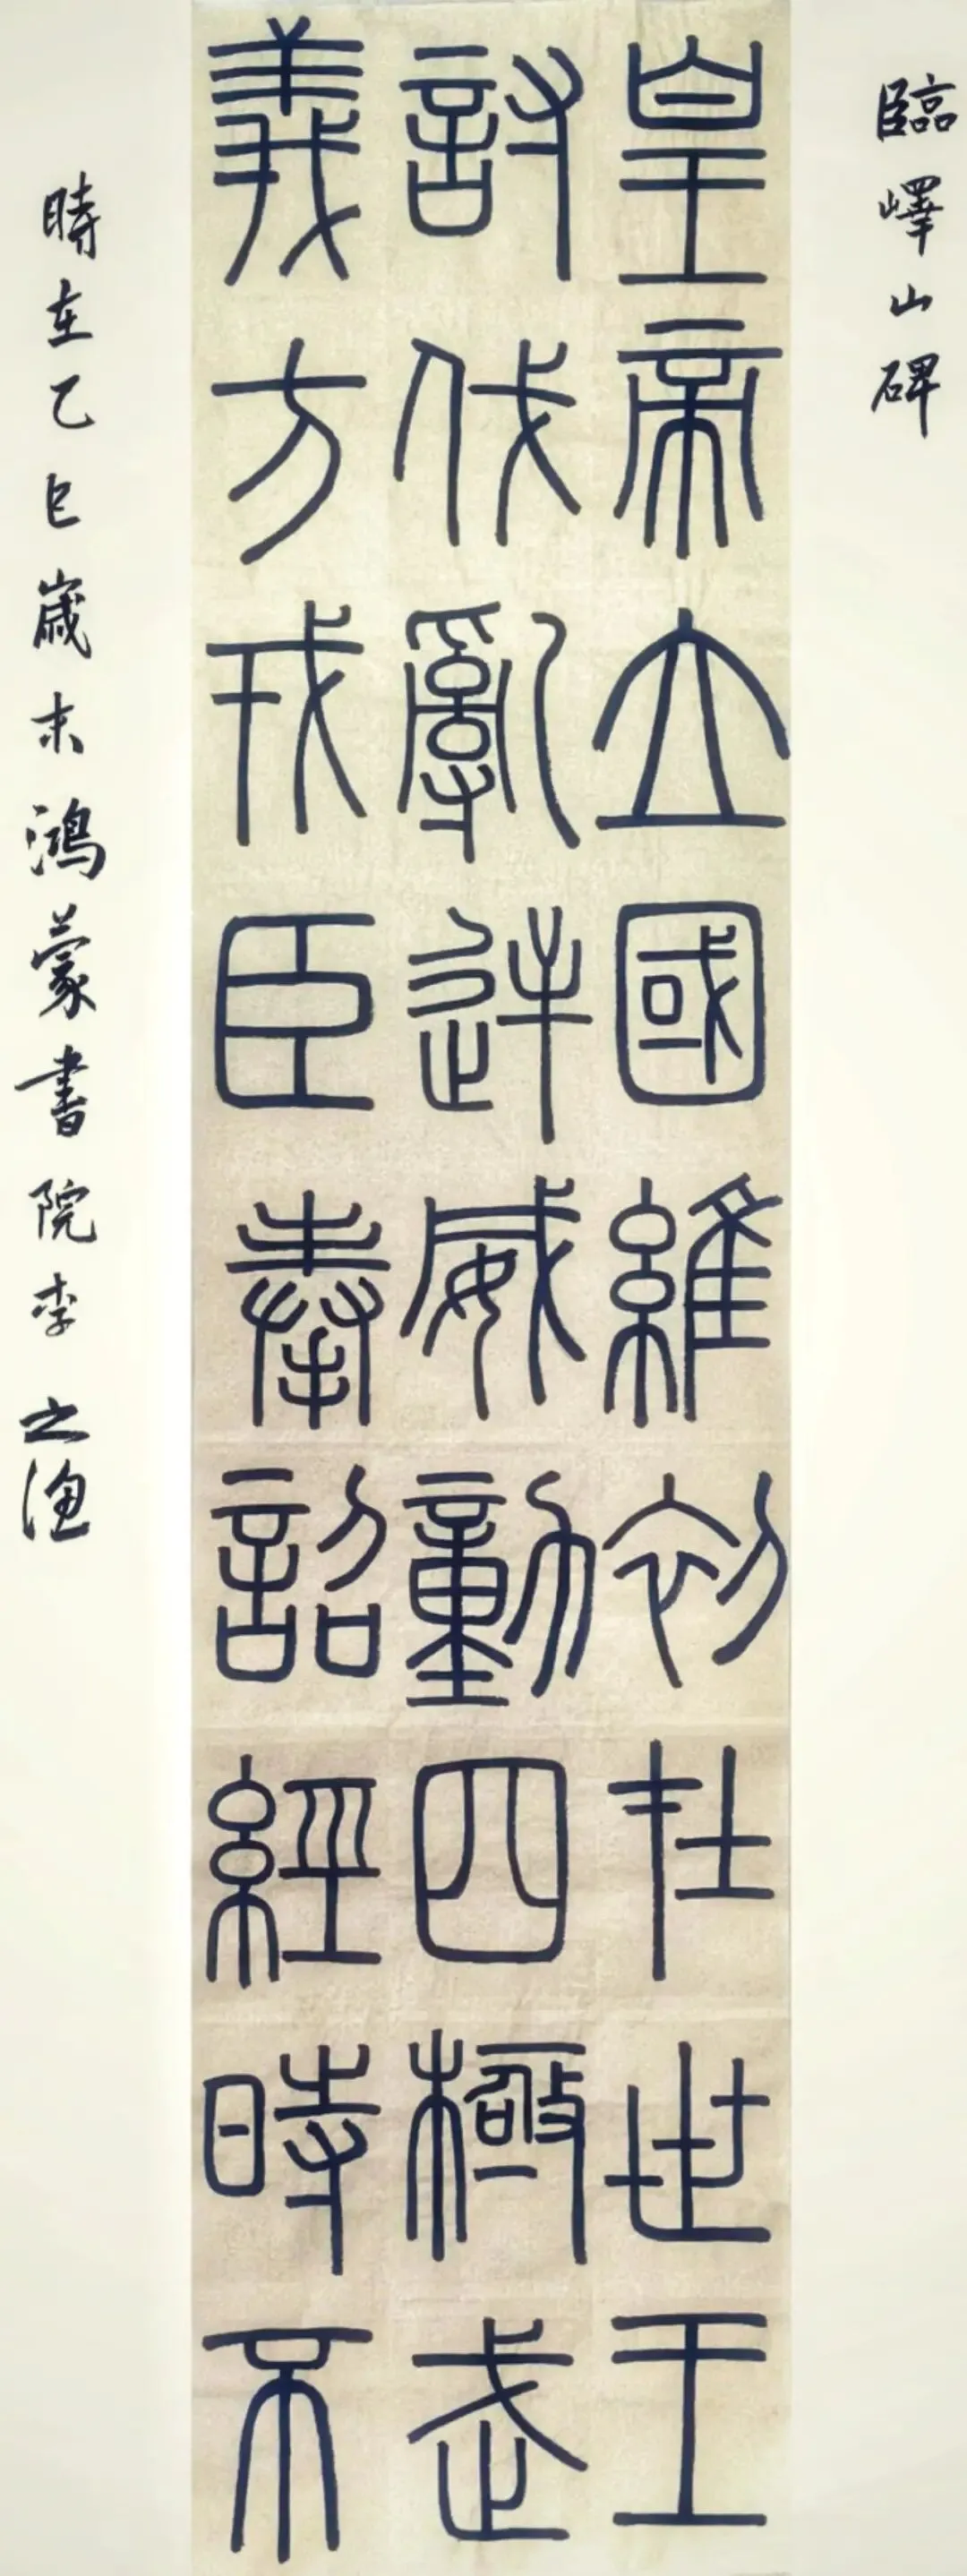 臨嶧山碑
皇帝立國維初在世王
討伐亂逆威動四極武
義方戎臣奉詔經時不
時在乙巳歲末鴻蒙書院李之渔